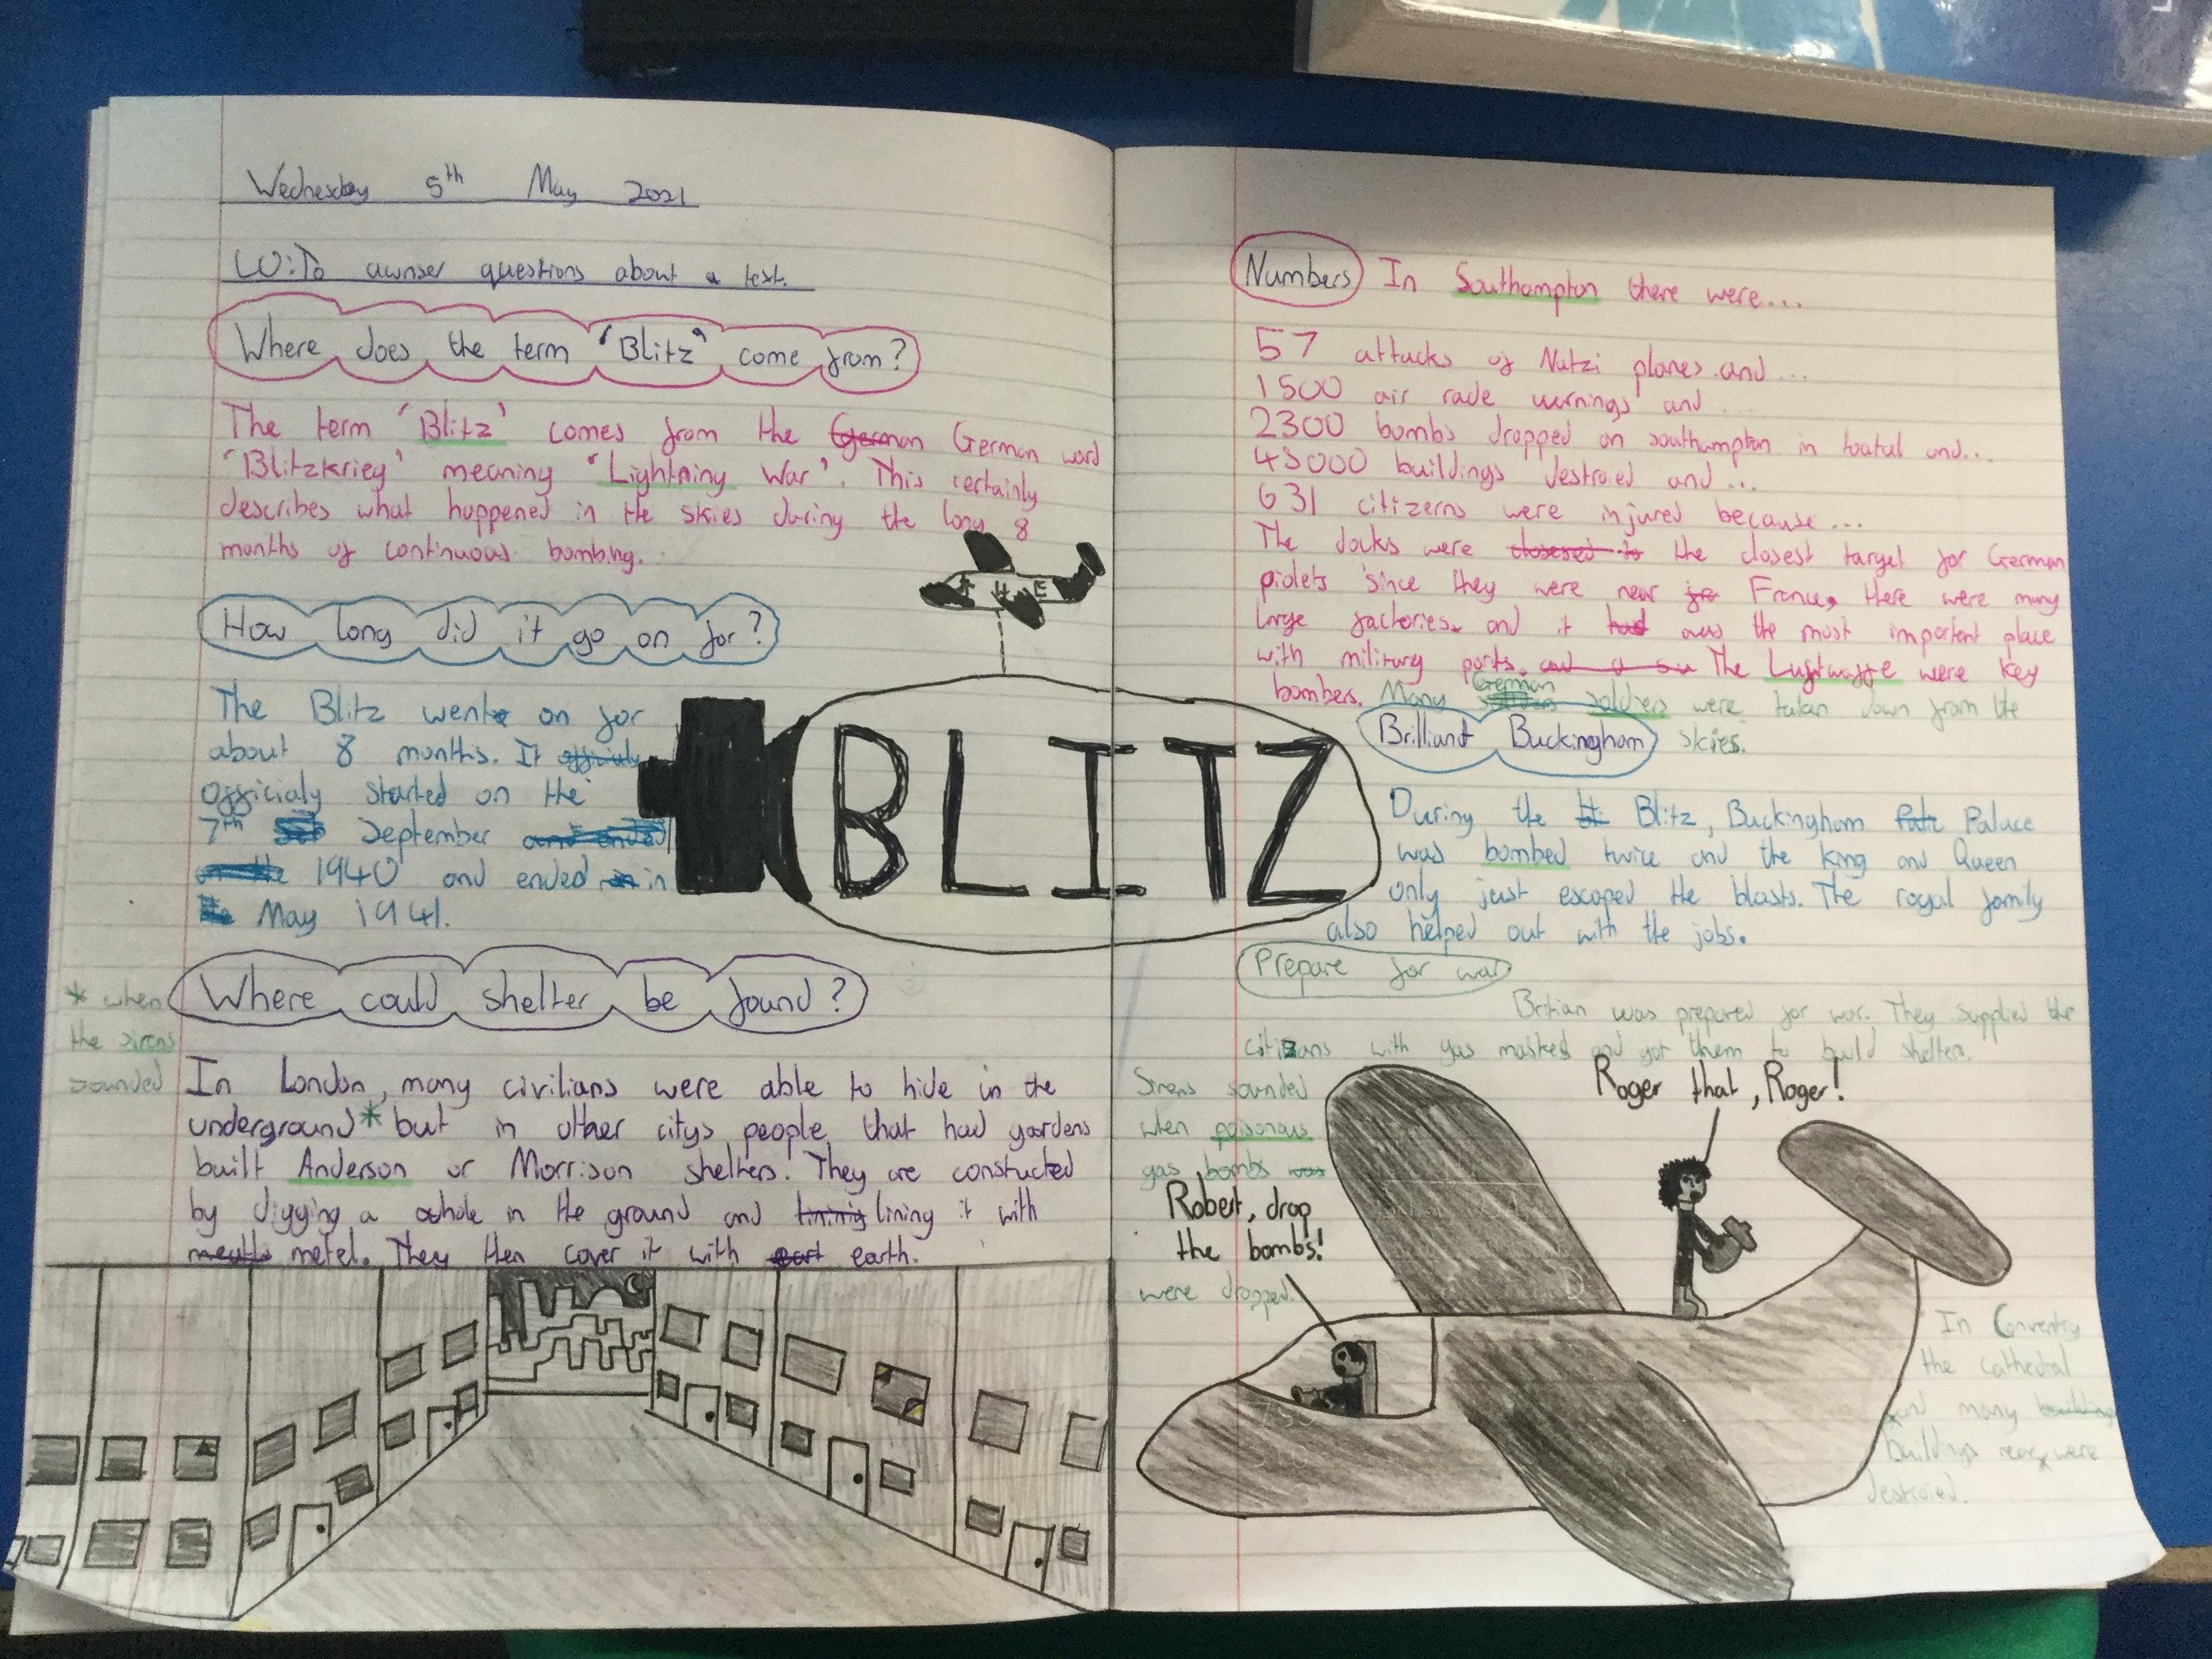 Wednesday 5th May 2021
LO: To awnser questions about a text.
Where does the term 'Blitz' come from?
The term 'Blitz' comes from the German German word
'Blitzkrieg' meaning 'Lightning War'. This certainly
describes what happened in the skies during the long 8
months of continuous bombing.
How long did it go on for?
The Blitz went on for
about 8 months. It
officialy started on the
7th September and ended
1940 and ended in
May 1941.
THE
BLITZ
Where could shelter be found?
* when
the sirens
sounded
In London, many civilians were able to hide in the
underground* but in other citys people that had gardens
built Anderson or Morrison shelters. They are constucted
by digging a hole in the ground and lining it with
metel. They then cover it with earth.
Numbers In Southampton there were...
57 attacks of Natzi planes and...
1500 air rade wernings and...
2300 bombs dropped on southampton in toatul and...
45000 buildings destroied and...
631 citizerns were injured because...
The docks were closesed to the closest target for German
piolets since they were near France, there were many
large factories and it had was the most importent place
with military ports. The Luftwaffe were key
bombers. Many German soldiers were takan down from the
skies.
Brilliant Buckingham
During the Blitz, Buckingham Palace
was bombed twice and the King and Queen
only just escaped the blasts. The royal family
also helped out with the jobs.
Prepare for war
Britian was prepared for war. They supplied the
citizans with gas maskes and got them to build shelter.
Sirens sounded
when poisonous
gas bombs was
were dropped.
Roger that, Roger!
Robert, drop
the bombs!
In Coventry
the Cathedral
and many
buildings near were
destroied.